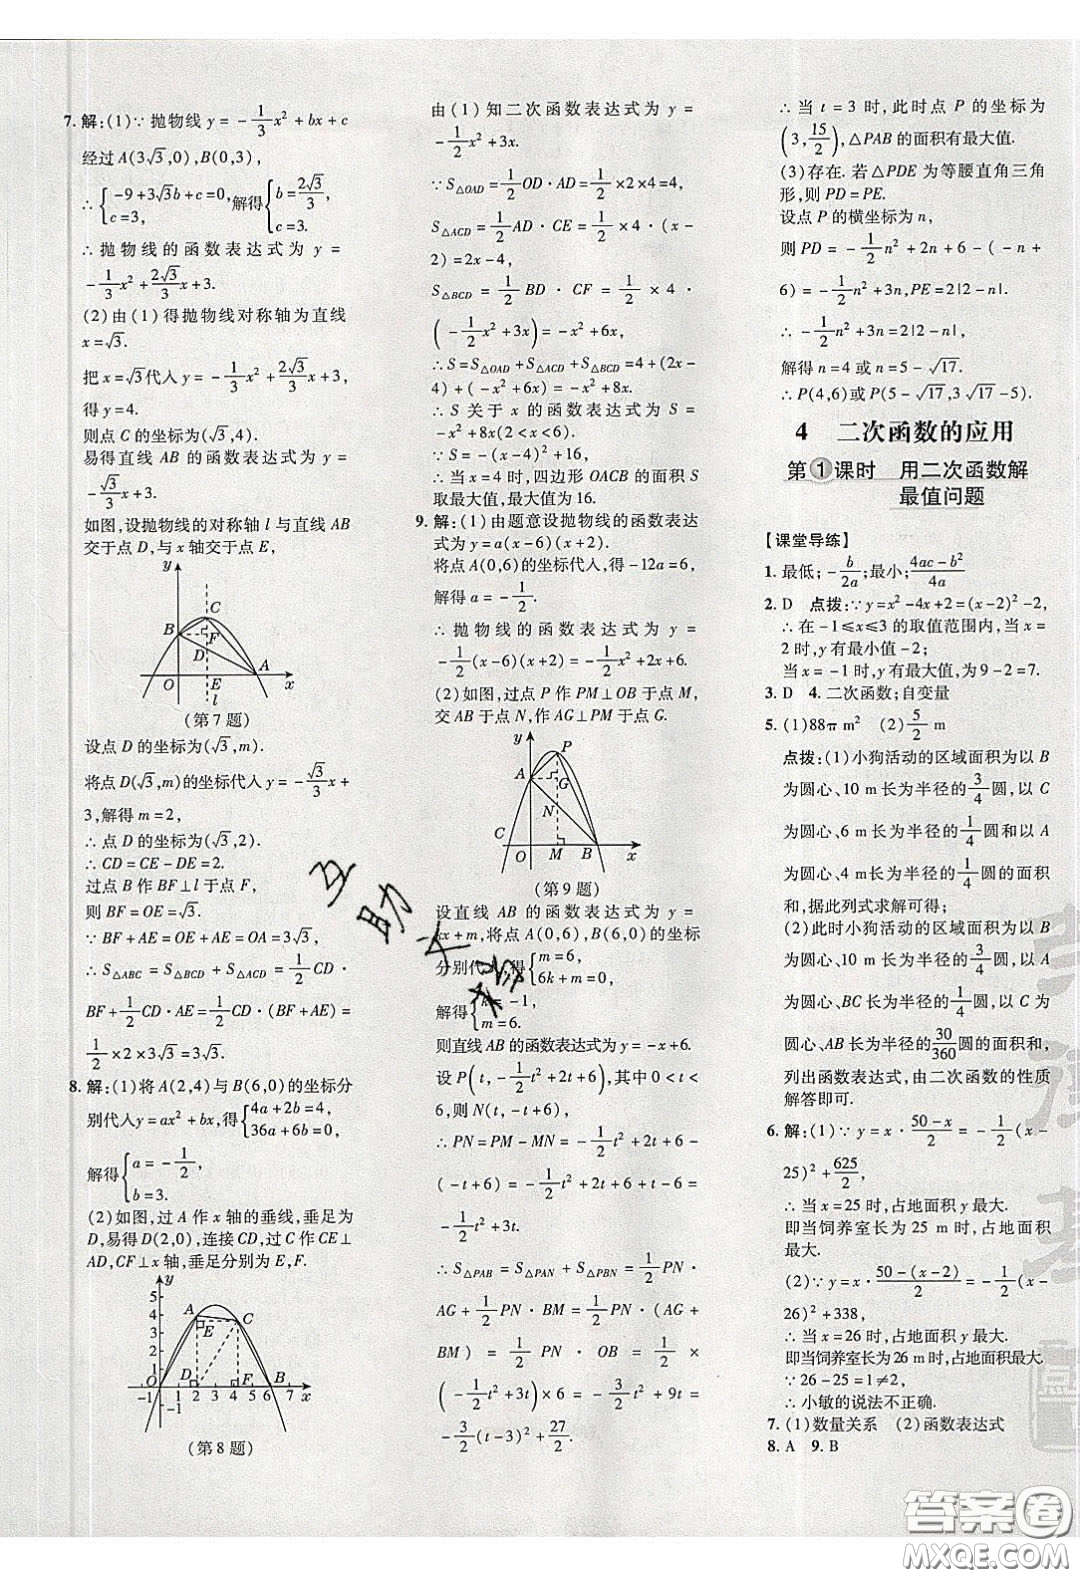 7. 解:(1)∵抛物线 y = -1/3 x² + bx + c
经过 A(3√3,0),B(0,3),
∴ { -9+3√3b+c=0, c=3. 解得 { b=2√3/3, c=3.
∴ 抛物线的函数表达式为 y =
-1/3 x² + 2√3/3 x+3.
(2)由(1)得抛物线对称轴为直线
x=√3.
把 x=√3代入 y = -1/3 x² + 2√3/3 x+3,
得 y=4.
则点 C 的坐标为(√3,4).
易得直线 AB 的函数表达式为 y =
-√3/3 x+3.
如图,设抛物线的对称轴 l 与直线 AB
交于点 D,与 x 轴交于点 E,
y
C
B
F
D
A
O
E
x
l
(第 7 题)
设点 D 的坐标为(√3,m).
将点 D(√3,m)的坐标代入 y= -√3/3 x+
3,解得 m=2,
∴点 D 的坐标为(√3,2).
∴ CD=CE-DE=2.
过点 B 作 BF⊥l 于点 F,
则 BF=OE=√3.
∵ BF+AE=OE+AE=OA=3√3,
∴ S△ABC = S△BCD + S△ACD = 1/2 CD·
BF+1/2 CD·AE=1/2 CD·(BF+AE)=
1/2 ×2×3√3=3√3.
8. 解:(1)将 A(2,4)与 B(6,0)的坐标分
别代入 y=ax²+bx,得 { 4a+2b=4, 36a+6b=0,
解得 { a=-1/2, b=3.
(2)如图,过 A 作 x 轴的垂线,垂足为
D,易得 D(2,0),连接 CD,过 C 作 CE⊥
AD,CF⊥x 轴,垂足分别为 E,F.
y
5
4
3
2
1
A
E
C
O
D
F
B
-1
1 2 3 4 5 6 7
x
-1
(第 8 题)
由(1)知二次函数表达式为 y =
-1/2 x²+3x.
∵S△OAD=1/2 OD·AD=1/2×2×4=4,
S△ACD=1/2 AD·CE=1/2×4×(x-
2)=2x-4,
S△BCD = 1/2 BD·CF = 1/2 ×4·
(-1/2 x²+3x)=-x²+6x,
∴S=S△OAD+S△ACD+S△BCD=4+(2x-
4)+(-x²+6x)=-x²+8x.
∴S 关于 x 的函数表达式为 S=
-x²+8x(2<x<6).
∵S=-(x-4)²+16,
∴当 x=4 时,四边形 OACB 的面积 S
取最大值,最大值为 16.
9. 解:(1)由题意设抛物线的函数表达
式为 y=a(x-6)(x+2).
将点 A(0,6)的坐标代入,得-12a=6,
解得 a=-1/2.
∴抛物线的函数表达式为 y=
-1/2(x-6)(x+2)=-1/2 x²+2x+6.
(2)如图,过点 P 作 PM⊥OB 于点 M,
交 AB 于点 N,作 AG⊥PM 于点 G.
y
P
A
G
N
C
O
M
B
x
(第 9 题)
设直线 AB 的函数表达式为 y=
kx+m,将点 A(0,6),B(6,0)的坐标
分别代入,得 { m=6, 6k+m=0,
解得 { k=-1, m=6.
则直线 AB 的函数表达式为 y=-x+6.
设 P(t,-1/2 t²+2t+6),其中 0<t<
6,则 N(t,-t+6).
∴PN=PM-MN=-1/2 t²+2t+6-
(-t+6)=-1/2 t²+2t+6+t-6=
-1/2 t²+3t.
∴S△PAB=S△PAN+S△PBN=1/2 PN·
AG+1/2 PN·BM=1/2 PN·(AG+
BM)=1/2 PN·OB=1/2×
(-1/2 t²+3t)×6=-3/2 t²+9t=
-3/2(t-3)²+27/2.
∴当 t=3 时,此时点 P 的坐标为
(3,15/2),△PAB 的面积有最大值.
(3)存在.若△PDE 为等腰直角三角
形,则 PD=PE.
设点 P 的横坐标为 n,
则 PD=-1/2 n²+2n+6-(-n+
6)=-1/2 n²+3n,PE=2|2-n|.
∴-1/2 n²+3n=2|2-n|,
解得 n=4 或 n=5-√17.
∴P(4,6)或 P(5-√17,3√17-5).
4 二次函数的应用
第1课时 用二次函数解
最值问题
【课堂导练】
1. 最低;-b/2a;最小;(4ac-b²)/4a
2. D 点拨:∵y=x²-4x+2=(x-2)²-2,
∴在-1≤x≤3 的取值范围内,当 x=
2 时,y 有最小值-2;
当 x=-1 时,y 有最大值,为 9-2=7.
3. D 4. 二次函数;自变量
5. (1)88π m² (2)5/2 m
点拨:(1)小狗活动的区域面积为以 B
为圆心、10 m 长为半径的3/4圆,以 C
为圆心、6 m 长为半径的1/4圆和以 A
为圆心、4 m 长为半径的1/4圆的面积
和,据此列式求解可得;
(2)此时小狗活动的区域面积为以 B
为圆心、10 m 长为半径的3/4圆,以 A
为圆心、BC 长为半径的1/4圆,以 C 为
圆心、AB 长为半径的30/360圆的面积和,
列出函数表达式,由二次函数的性质
解答即可.
6. 解:(1)∵y=x·(50-x)/2=-1/2(x-
25)²+625/2,
∴当 x=25 时,占地面积 y 最大.
即当饲养室长为 25 m 时,占地面积
最大.
(2)∵y=x·(50-(x-2))/2=-1/2(x-
26)²+338,
∴当 x=26 时,占地面积 y 最大.
即当饲养室长为 26 m 时,占地面积最大.
∵26-25=1≠2,
∴小敏的说法不正确.
7. (1)数量关系 (2)函数表达式
8. A 9. B
互助
答案卷
MXQE.COM